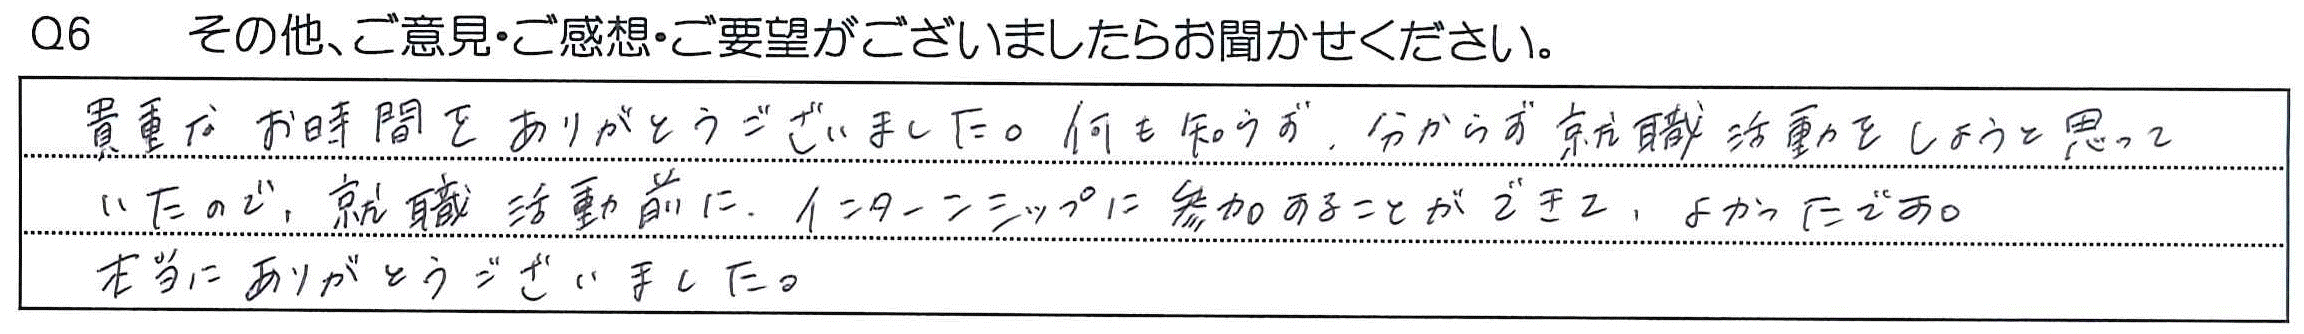 Q6 その他、ご意見・ご感想・ご要望がございましたらお聞かせください。
貴重なお時間をありがとうございました。何も知らず、分からず就職活動をしようと思って
いたので、就職活動前に、インターンシップに参加することができて、よかったです。
本当にありがとうございました。